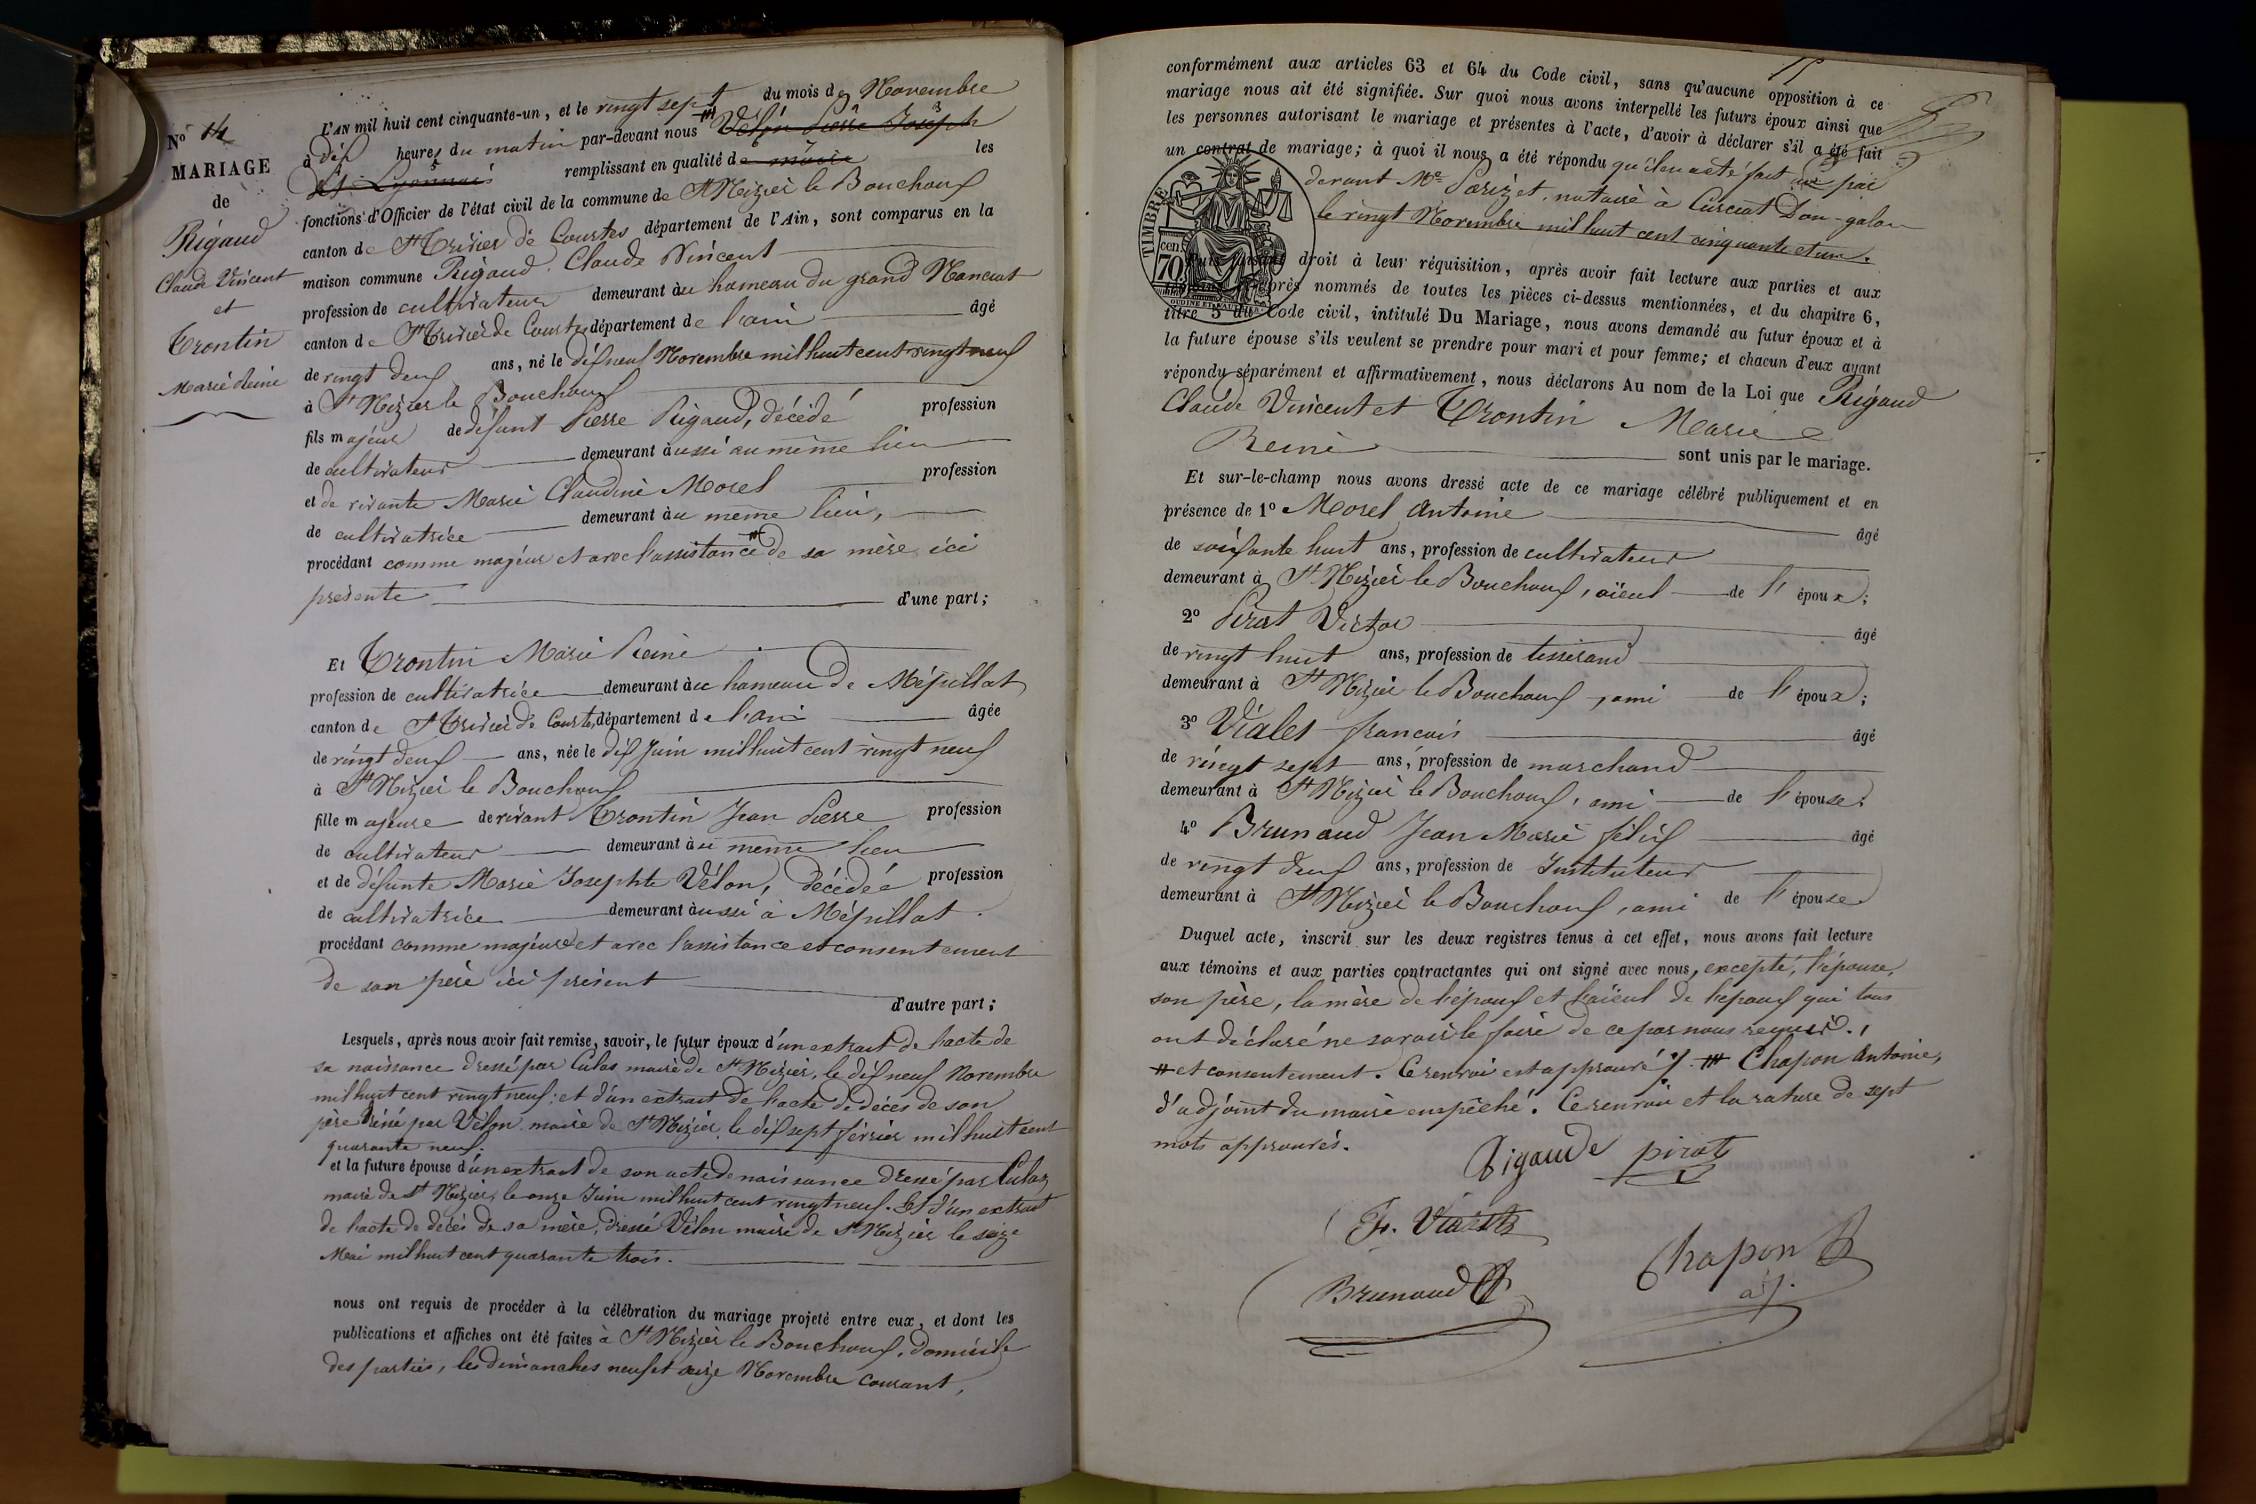 N° 14
MARIAGE
de
Rigaud
Claude Vincent
et
Trontin
Marie Reine
L'AN mil huit cent cinquante-un, et le vingt sept du mois de Novembre
à dix heures du matin par-devant nous Vélon Pierre Joseph
dit Lyonnais remplissant en qualité de maire les
fonctions d'Officier de l'état civil de la commune de St Nizier le Bouchoux
canton de St Trivier de Courtes département de l'Ain, sont comparus en la
maison commune Rigaud Claude Vincent
profession de cultivateur demeurant à au hameau du grand Mancrat
canton de St Trivier de Courtes département de l'ain âgé
de vingt deux ans, né le dix neuf Novembre mil huit cent vingt neuf
à St Nizier le Bouchoux
fils majeur de défunt Pierre Rigaud, décédé profession
de cultivateur demeurant à aussi au même lieu
et de vivante Marie Claudine Morel profession
de cultivatrice demeurant à au même lieu,
procédant comme majeur et avec l'assistance de sa mère ici
présente d'une part;
Et Trontin Marie Reine
profession de cultivatrice demeurant à au hameau de Mépillat
canton de St Trivier de Courtes, département de l'ain âgée
de vingt deux ans, née le dix Juin mil huit cent vingt neuf
à St Nizier le Bouchoux
fille majeure de vivant Trontin Jean Pierre profession
de cultivateur demeurant à au même lieu
et de défunte Marie Josephte Vélon, décédée profession
de cultivatrice demeurant à aussi à Mépillat.
procédant comme majeure et avec l'assistance et consentement
de son père ici présent
d'autre part;
Lesquels, après nous avoir fait remise, savoir, le futur époux d'un extrait de l'acte de
sa naissance dressé par Culas maire de St Nizier, le dix neuf Novembre
mil huit cent vingt neuf; et d'un extrait de l'acte de décès de son
père par Vélon maire de St Nizier le dix sept février mil huit cent
quarante neuf.
et la future épouse d'un extrait de son acte de naissance dressé par Culas
maire de St Nizier, le onze Juin mil huit cent vingt neuf. Et d'un extrait
de l'acte de décès de sa mère, dressé Vélon maire de St Nizier le seize
Mai mil huit cent quarante trois.
nous ont requis de procéder à la célébration du mariage projeté entre eux, et dont les
publications et affiches ont été faites à St Nizier le Bouchoux, domicile
des parties, les dimanches neuf et seize Novembre courant,
15
conformément aux articles 63 et 64 du Code civil, sans qu'aucune opposition à ce
mariage nous ait été signifiée. Sur quoi nous avons interpellé les futurs époux ainsi que
les personnes autorisant le mariage et présentes à l'acte, d'avoir à déclarer s'il a été fait
un contrat de mariage; à quoi il nous a été répondu qu'il en a été fait un par
devant Me Parizet, notaire à Curciat Don-galon
le vingt Novembre mil huit cent cinquante et un.
TIMBRE
cen.
70
Puis faisant droit à leur réquisition, après avoir fait lecture aux parties et aux
après nommés de toutes les pièces ci-dessus mentionnées, et du chapitre 6,
titre 5 du Code civil, intitulé Du Mariage, nous avons demandé au futur époux et à
la future épouse s'ils veulent se prendre pour mari et pour femme; et chacun d'eux ayant
répondu séparément et affirmativement, nous déclarons Au nom de la Loi que Rigaud
Claude Vincent et Trontin Marie
Reine sont unis par le mariage.
Et sur-le-champ nous avons dressé acte de ce mariage célébré publiquement et en
présence de 1° Morel Antoine âgé
de soixante huit ans, profession de cultivateur
demeurant à St Nizier le Bouchoux, aïeul de l'époux;
2° Pirat Victor âgé
de vingt huit ans, profession de tisserand
demeurant à St Nizier le Bouchoux, ami de l'époux;
3° Vialet françois âgé
de vingt sept ans, profession de marchand
demeurant à St Nizier le Bouchoux, ami de l'épouse;
4° Brunaud Jean Marie félix âgé
de vingt deux ans, profession de Instituteur
demeurant à St Nizier le Bouchoux, ami de l'épouse
Duquel acte, inscrit sur les deux registres tenus à cet effet, nous avons fait lecture
aux témoins et aux parties contractantes qui ont signé avec nous, excepté, l'épouse,
son père, la mère de l'époux et l'aïeul de l'époux qui tous
ont déclaré ne savoir le faire de ce par nous requis.
# et consentement. Ce renvoi est approuvé. # Chapon Antoine,
d'adjoint du maire empêché. Ce renvoi et la rature de sept
mots approuvés.
Rigaude pirat
Fr. Vialet
Brunaud Chapon
adj.